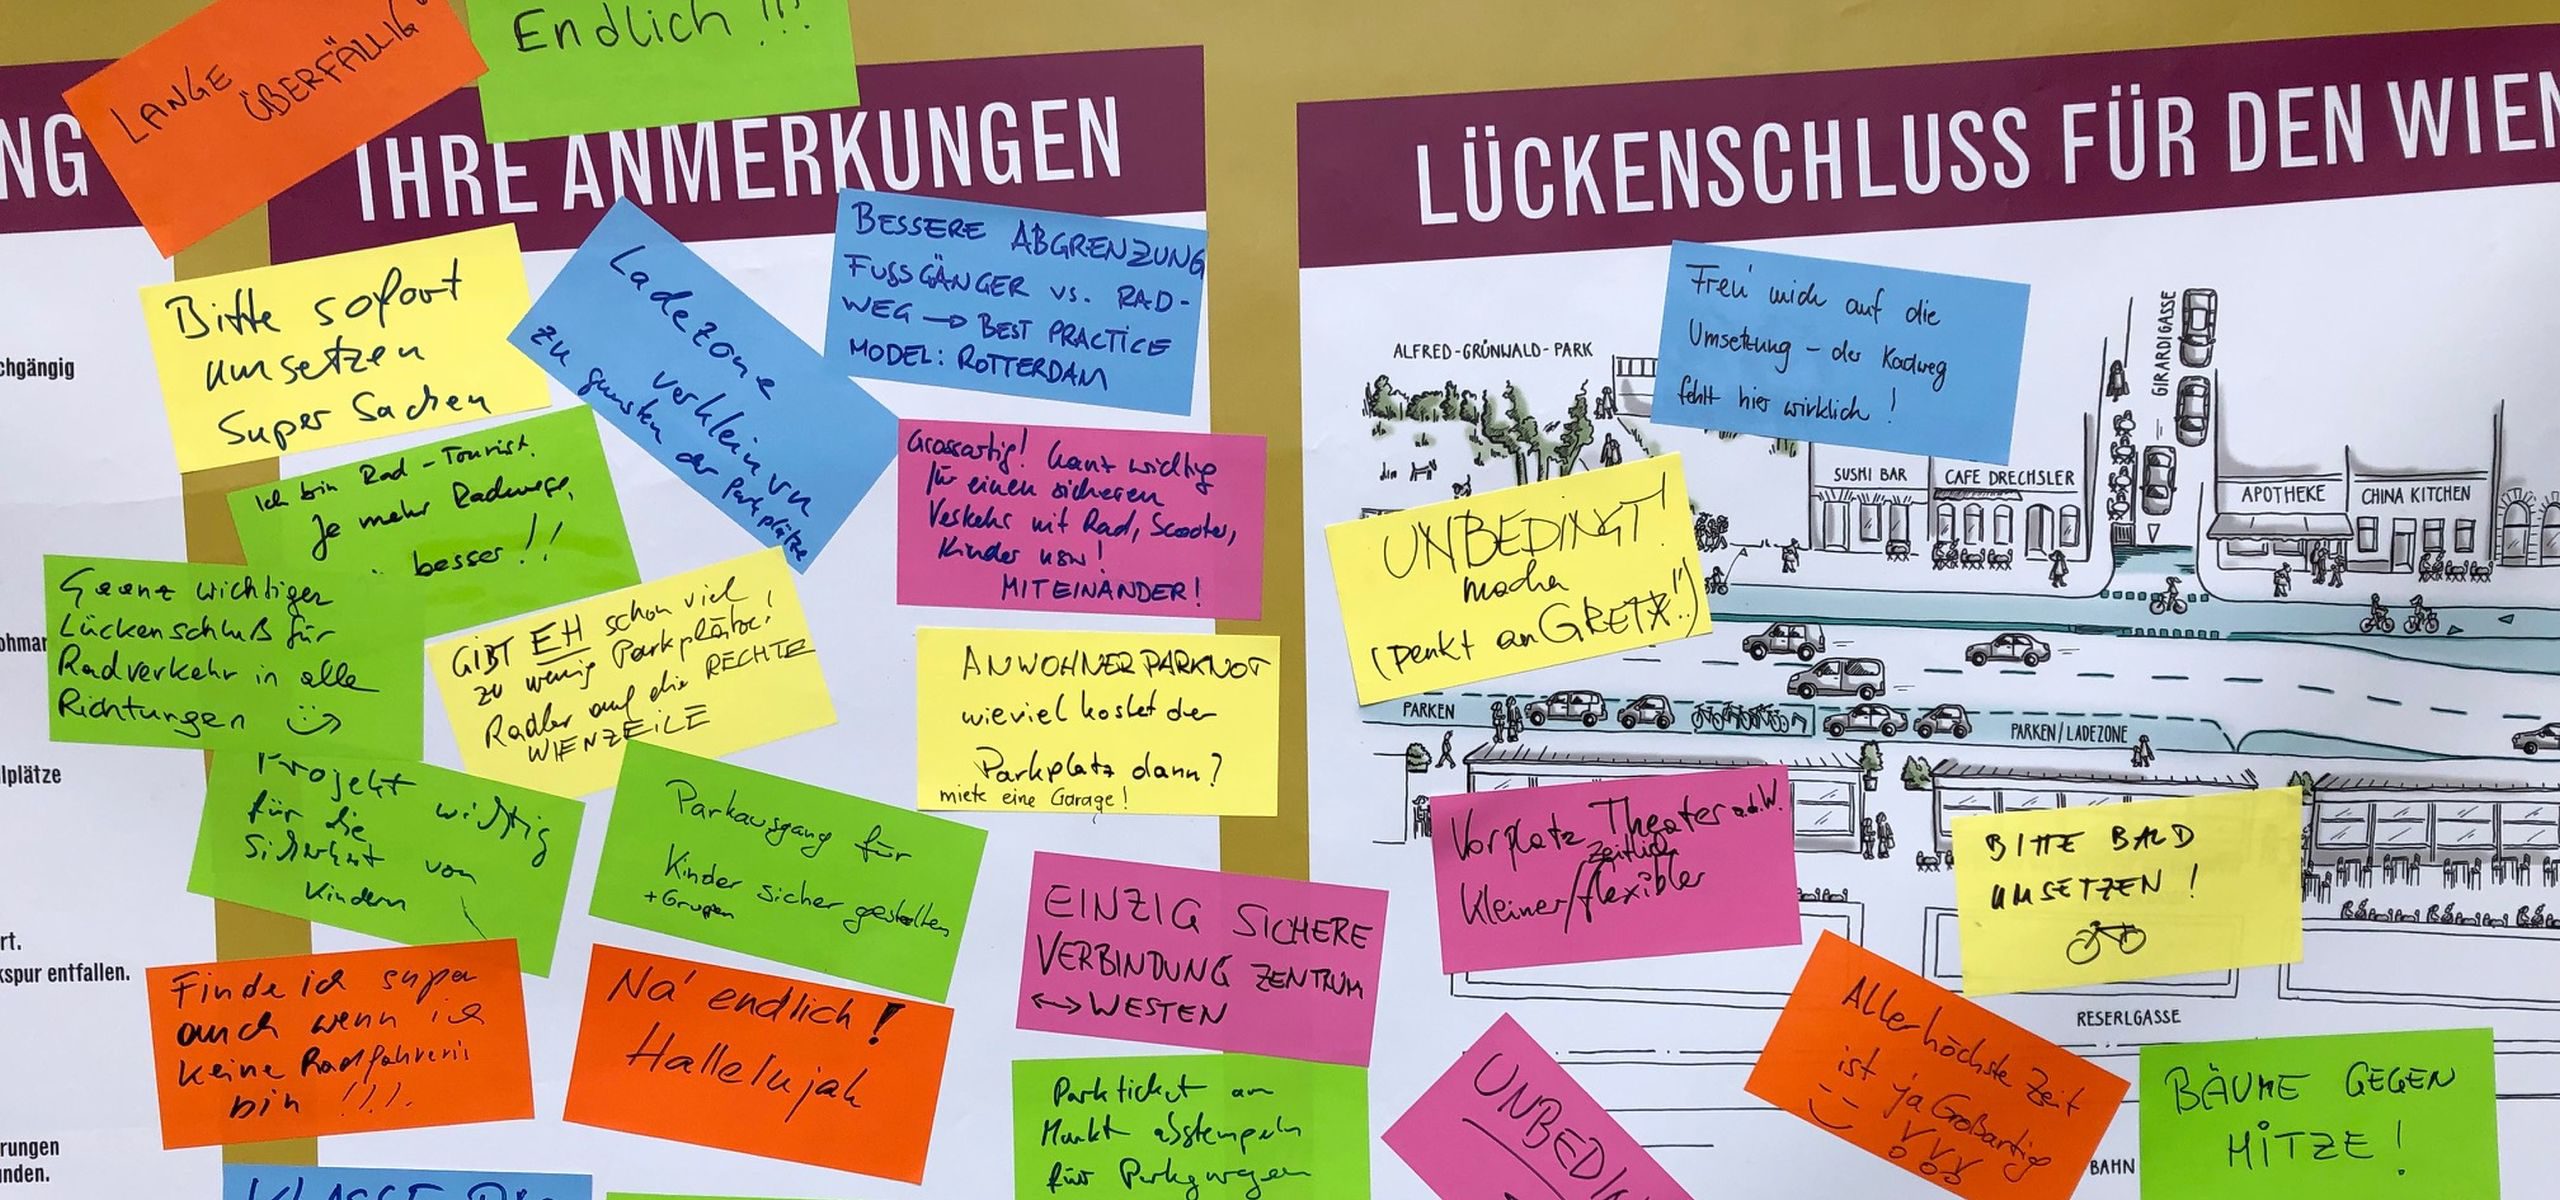 LANGE
ÜBERFÄLLIG
Endlich !!!
NG
IHRE ANMERKUNGEN
LÜCKENSCHLUSS FÜR DEN WIEN
chgängig
ohmar
lplätze
rt.
kspur entfallen.
rungen
nden.
Bitte sofort
umsetzen
Super Sachen
Ladezone
verkleinern
zu gunsten der Parkplätze
BESSERE ABGRENZUNG
FUSSGÄNGER vs. RAD-
WEG → BEST PRACTICE
MODEL: ROTTERDAM
Ich bin Rad-Tourist.
Je mehr Radwege,
besser!!
Grossartig! Ganz wichtig
für einen sicheren
Verkehr mit Rad, Scooter,
Kinder usw!
MITEINANDER!
Gaanz wichtiger
Lückenschluß für
Radverkehr in alle
Richtungen
GIBT EH schon viel
zu wenig Parkplätze!
Radler auf die RECHTE
WIENZEILE
ANWOHNERPARKNOT
wieviel kostet der
Parkplatz dann?
miete eine Garage!
Projekt wichtig
für die
Sicherheit von
Kindern
Parkausgang für
Kinder sicher gestalten
+Gruppen
EINZIG SICHERE
VERBINDUNG ZENTRUM
↔ WESTEN
Finde ich super
auch wenn ich
keine Radfahrerin
bin !!!.
Na endlich!
Hallelujah
Parkticket am
Markt abstempeln
für
Freu mich auf die
Umsetzung - der Radweg
fehlt hier wirklich!
ALFRED-GRÜNWALD-PARK
GIRARDIGASSE
SUSHI BAR
CAFE DRECHSLER
APOTHEKE
CHINA KITCHEN
UNBEDINGT!
machen
(Denkt an GRETA!!)
PARKEN
PARKEN/LADEZONE
Vorplatz Theater a.d.W.
zeitlich
kleiner/flexibler
BITTE BALD
UMSETZEN!
RESERLGASSE
Allerhöchste Zeit
ist ja Großartig
UNBEDIN
BÄUME GEGEN
HITZE!
BAHN